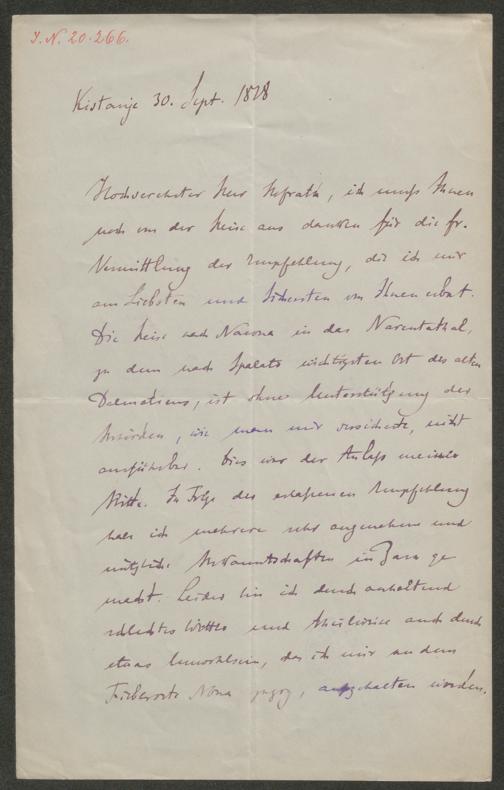 I. N. 20.266.
Kistanje 30. Sept. 1878
Hochverehrter Herr Hofrath, ich muß Ihnen
noch von der Reise aus danken für die fr.
Vermittlung der Empfehlung, die ich mir
am Liebsten und Sichersten von Ihnen erbat.
Die Reise nach Narona in das Narentathal,
zu dem nach Spalato wichtigsten Ort des alten
Dalmatiens, ist ohne Unterstützung der
Behörden, wie man mir versicherte, nicht
ausführbar. Dies war der Anlaß meiner
Bitte. In Folge der erlassenen Empfehlung
habe ich mehrere sehr angenehme und
nützliche Bekanntschaften in Zara ge
macht. Leider bin ich durch anhaltend
schlechtes Wetter und theilweise auch durch
etwas Unwohlsein, das ich mir an dem
Fieberorte Nona zuzog, aufgehalten worden.